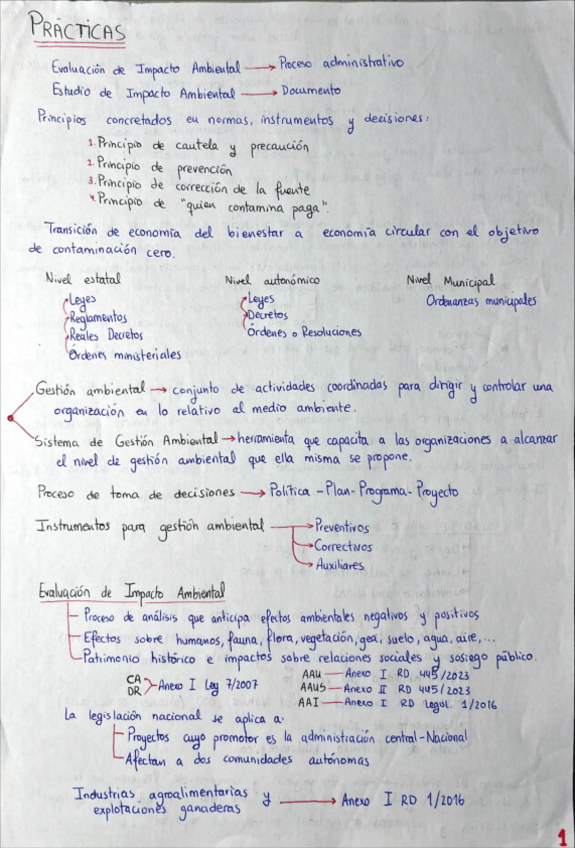 PRÁCTICAS
Evaluación de Impacto Ambiental → Proceso administrativo
Estudio de Impacto Ambiental → Documento
Principios concretados en normas, instrumentos y decisiones:
1. Principio de cautela y precaución
2. Principio de prevención
3. Principio de corrección de la fuente
4. Principio de "quien contamina paga".
Transición de economía del bienestar a economía circular con el objetivo
de contaminación cero.
Nivel estatal Nivel autonómico Nivel Municipal
Leyes Leyes Ordenanzas municipales
Reglamentos Decretos
Reales Decretos Órdenes o Resoluciones
Órdenes ministeriales
Gestión ambiental → conjunto de actividades coordinadas para dirigir y controlar una
organización en lo relativo al medio ambiente.
Sistema de Gestión Ambiental → herramienta que capacita a las organizaciones a alcanzar
el nivel de gestión ambiental que ella misma se propone.
Proceso de toma de decisiones → Política - Plan - Programa - Proyecto
Instrumentos para gestión ambiental → Preventivos
→ Correctivos
→ Auxiliares
Evaluación de Impacto Ambiental
Proceso de análisis que anticipa efectos ambientales negativos y positivos
Efectos sobre humanos, fauna, flora, vegetación, gea, suelo, agua, aire, ...
Patrimonio histórico e impactos sobre relaciones sociales y sosiego público.
CA
DR > Anexo I Ley 7/2007
AAU — Anexo I RD 445/2023
AAUS — Anexo II RD 445/2023
AAI — Anexo I RD Legisl. 1/2016
La legislación nacional se aplica a:
Proyectos cuyo promotor es la administración central - Nacional
Afectan a dos comunidades autónomas
Industrias agroalimentarias y
explotaciones ganaderas → Anexo I RD 1/2016
1